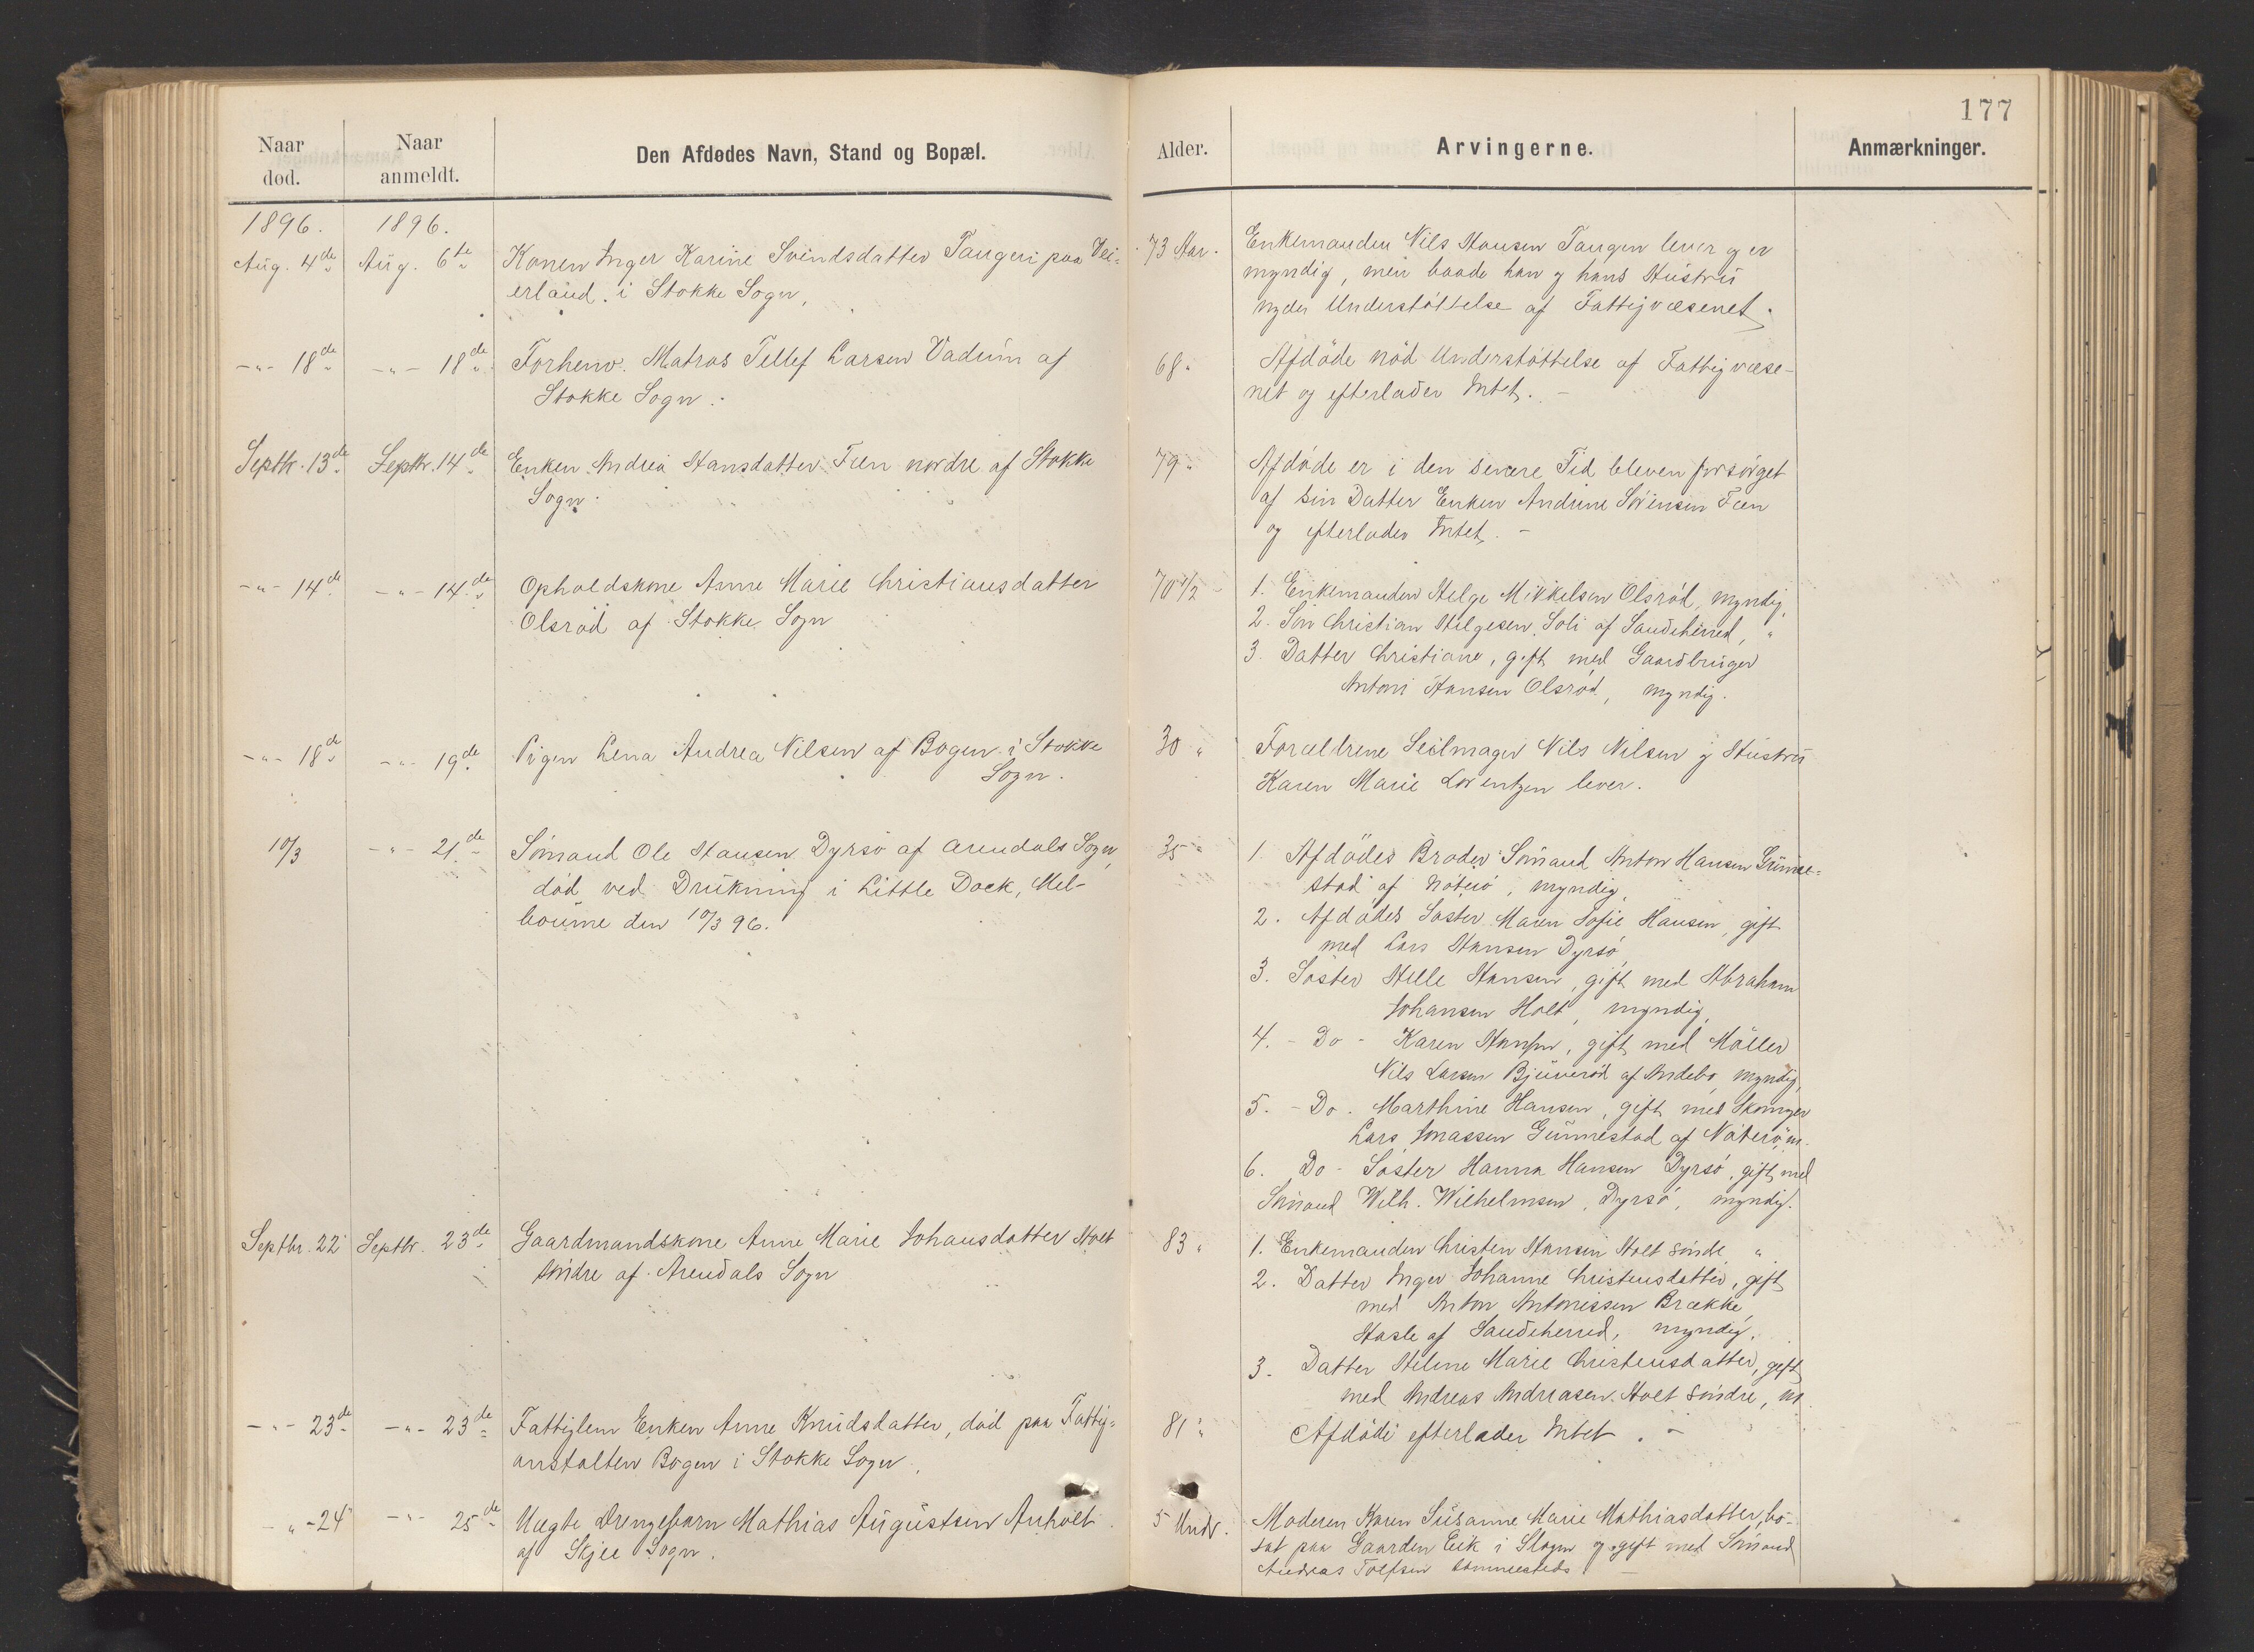 177
Naar
død.
Naar
anmeldt.
Den Afdødes Navn, Stand og Bopæl.
Alder.
Arvingerne.
Anmærkninger.
1896. 1896.
Aug. 4de Aug. 6te Konen Inger Karine Svendsdatter Tangen paa Vei-
erland i Stokke Sogn,
73 Aar.
Enkemanden Nils Hansen Tangen lever og er
myndig, men baade han og hans Hustru
nyder Understøttelse af Fattigvæsenet.
-"- 18de -"- 18de Forhenv. Matros Tellef Larsen Vadum af
Stokke Sogn.
68 "
Afdøde nød Understøttelse af Fattigvæse-
net og efterlader Intet. -
Septbr. 13de Septbr. 14de Enken Andrea Hansdatter Fæn nordre af Stokke
Sogn.
79 "
Afdøde er i den senere Tid bleven forsørget
af sin Datter Enken Andrine Sørensen Fæn
og efterlader Intet. -
-"- 14de -"- 14de Opholdskone Anne Marie Christiansdatter
Olsrød af Stokke Sogn
70 1/2 -
1. Enkemanden Helge Mikkelsen Olsrød, myndig,
2. Søn Christian Helgesen Soli af Sandeherred, "
3. Datter Christiane, gift med Gaardbruger
Antoni Hansen Olsrød, myndig.
-"- 18de -"- 19de Pigen Lena Andrea Nilsen af Bogen i Stokke
Sogn.
30 "
Forældrene Seilmager Nils Nilsen og Hustru
Karen Marie Lorentzen lever.
10/3 -"- 21de Sømand Ole Hansen Dyrsø af Arendals Sogn,
død ved Drukning i Little Dock, Mel-
bourne den 10/3 96.
35 "
1. Afdødes Broder Sømand Anton Hansen Grimme-
stad af Nøterø, myndig,
2. Afdødes Søster Maren Sofie Hansen, gift
med Lars Hansen Dyrsø,
3. Søster Helle Hansen, gift med Abraham
Johansen Holt, myndig,
4. - Do - Karen Hansen, gift med Møller
Nils Larsen Bjuerød af Andebo, myndig,
5. - Do. Marthine Hansen, gift med Skomager
Lars Jonassen Gunnestad af Nøterø, m.
6. Do - Søster Hanna Hansen Dyrsø, gift med
Sømand Wilh. Wilhelmsen, Dyrsø, myndig.
Septbr. 22 Septbr. 23de Gaardmandskone Anne Marie Johansdatter Holt
søndre af Arendals Sogn
83 "
1. Enkemanden Christen Hansen Holt søndre "
2. Datter Inger Johanne Christensdatter, gift
med Anton Antonissen Brække,
Hasle af Sandeherred, myndig.
3. Datter Heline Marie Christensdatter, gift
med Andreas Andreasen Holt søndre, m.
-"- 23de -"- 23de Fattiglem Enken Anne Knudsdatter, død paa Fattig-
anstalten Bogen i Stokke Sogn.
81 "
Afdøde efterlader Intet. -
-"- 24 -"- 25de Uægte Drengebarn Mathias Augustsen Anholt
af Skjee Sogn.
5 Undr.
Moderen Karen Susanne Marie Mathiasdatter, bo-
sat paa Gaarden Eik i Slagen og gift med Sømand
Andreas Tolfsen sammesteds -